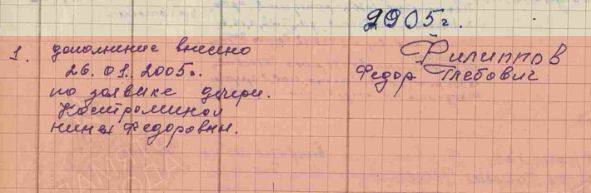 2005г.
1. дополнение внесено
26.01.2005г.
по заявке дочери.
Костроминой
Нины Федоровны.
Филиппов
Федор Глебович